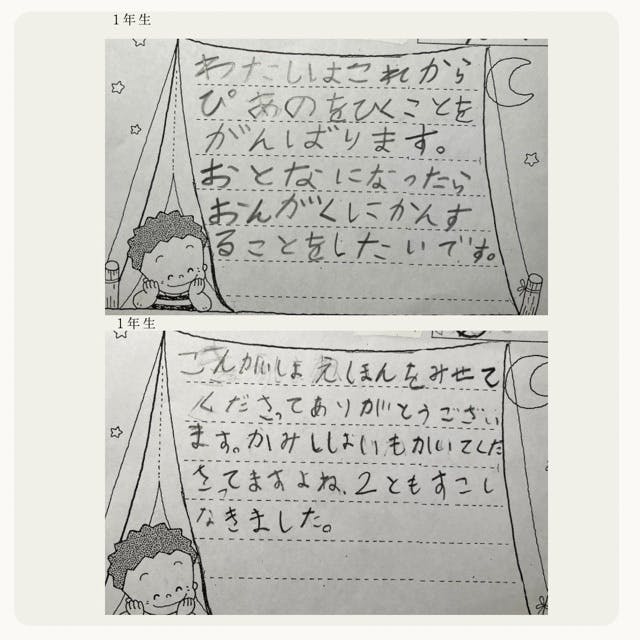 1年生
わたしはこれから
ぴあのをひくことを
がんばります。
おとなになったら
おんがくにかんす
ることをしたいです。
1年生
こんかいは えほんをみせて
くださってありがとうござい
ます。かみしばいもかいてくだ
さってますよね、2ともすこし
なきました。